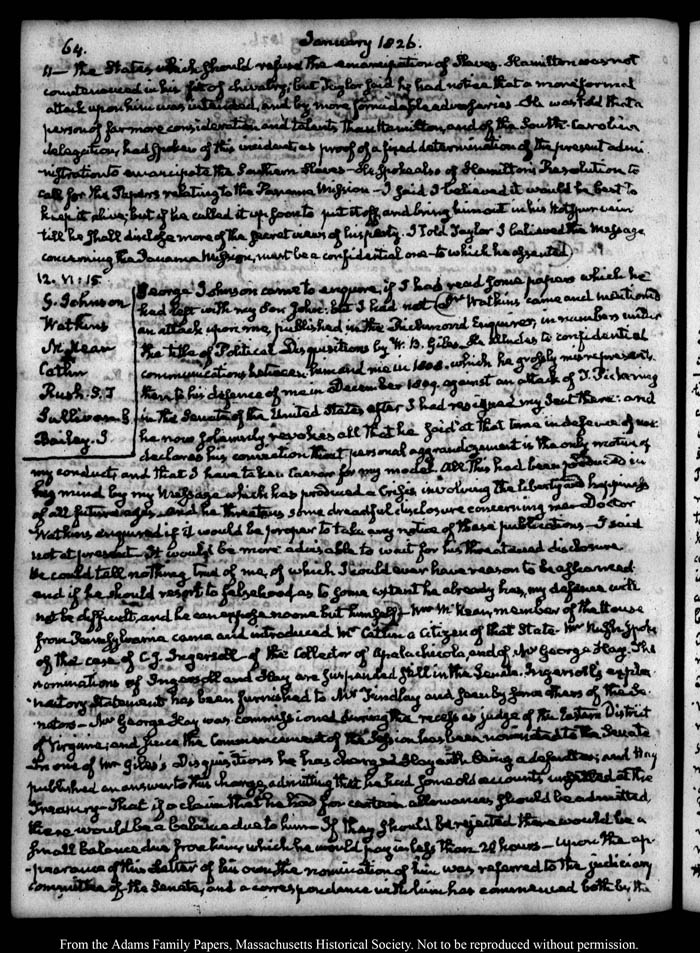 64.
January 1826.
11— the States which should refuse the emancipation of Slaves. Hamilton was not
countenanced in his fit of chivalry; but Taylor said he had notice that a more formal
attack upon him was intended, and by more formidable adversaries — He was told that a
person of far more consideration and talents than Hamilton, and of the South-Carolina
delegation, had spoken of this incident, as proof of a fixed determination of the present admi-
-nistration to emancipate the Southern Slaves — He spoke also of Hamilton's Resolution to
call for the Papers relating to the Panama Mission — I said I believed it would be best to
keep it alive; but if he called it up soon to put it off, and bring him out in his Hotspur vein
till he shall disclose more of the secret views of his party. I told Taylor I believed the Message
concerning the Panama Mission, must be a confidential one — to which he assented
12. VI: 15
G. Johnson
Watkins
McKean
Catlin
Rush. S.T
Sullivan. G
Bailey. J
George Johnson came to enquire, if I had read some papers which he
had left with my Son John. but I had not Dr Watkins came and mentioned
an attack upon me, published in the Richmond Enquirer, in numbers under
the title of Political Disquisitions by W. B. Giles. He alludes to confidential
communications between him and me in 1808. which he grossly misrepresents.
then to his defence of me in December 1808. against an attack of T. Pickering
in the Senate of the United States after I had resigned my Seat there: and
he now solemnly revokes all that he said at that time in defence of me.
declares his conviction that personal aggrandizement is the only motive of
my conduct, and that I have taken Caesar for my model. All this had been produced in
his mind by my Message which has produced a Crisis, involving the liberty and happiness
of all future ages. and he threatens some dreadful disclosure concerning me. Doctor
Watkins enquired if it would be proper to take any notice of these publications — I said
not at present. It would be more advisable to wait for his threatened disclosure.
He could tell nothing true of me, of which I could ever have reason to be ashamed.
and if he should resort to falsehood as to some extent he already has, my defence will
not be difficult, and he can expose no one but himself — Mr McKean, member of the House
from Pennsylvania came and introduced Mr Catlin a Citizen of that State. Mr Rush spoke
of the case of C. J. Ingersoll — of the Collector of Apalachicola, and of Mr George Hay. The
nominations of Ingersoll and Hay are suspended still in the Senate. Ingersoll's expla-
natory Statement has been furnished to Mr Findlay and seen by some others of the Se-
nators — Mr George Hay was commissioned during the recess as judge of the Eastern District
of Virginia; and since the Commencement of the Session has been nominated to the Senate
In one of Mr Giles's Disquisitions he has charged Hay with being a defaulter; and Hay
published an answer to this charge, admitting that he had some old accounts unsettled at the
Treasury — That if a claim that he had for certain allowances, should be admitted,
there would be a balance due to him — If they should be rejected there would be a
small balance due from him, which he would pay in less than 24 hours — Upon the ap-
-pearance of this letter of his own the nomination of him was referred to the judiciary
Committee of the Senate, and a correspondence with him has commenced both by the
From the Adams Family Papers, Massachusetts Historical Society. Not to be reproduced without permission.